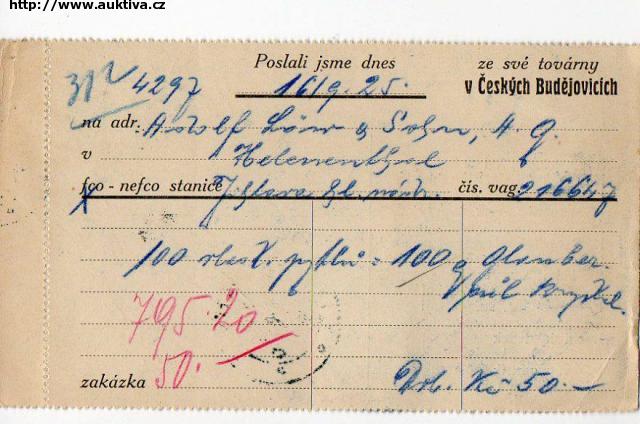 http://www.auktiva.cz
Poslali jsme dnes ze své továrny
4297 16/9.25. v Českých Budějovicích
na adr. Adolf Löw & Sohn, A.G.
v Helenenthal
fco - nefco stanice Jihlava hl. nádr. čís. vag. 216647
100 vlast. pytlů = 100 q
795.20
50.
zakázka Drb. Kč 50.—